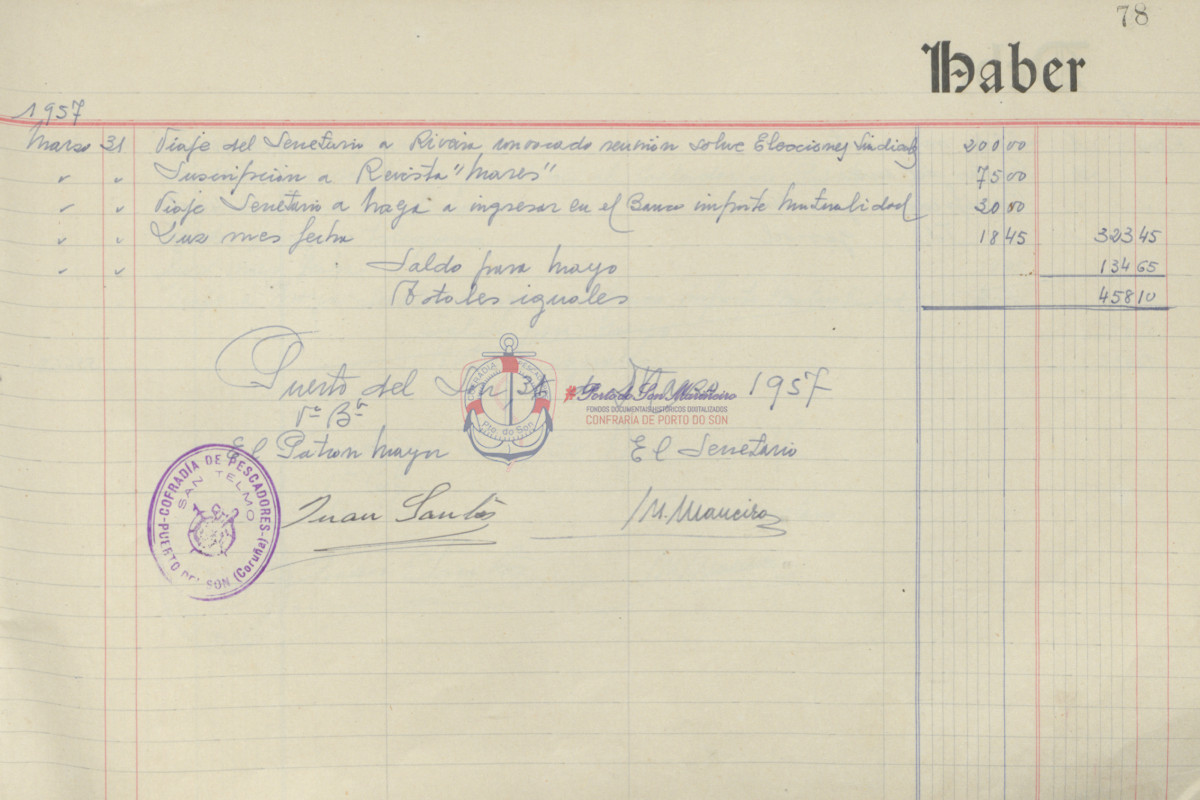 78
Haber
1957
Marzo 31 Viaje del Secretario a Riveira convocado reunión sobre Elecciones Sindicales 200 00
" " Suscripcion a Revista "Mares" 75 00
" " Viaje Secretario a Noya a ingresar en el Banco importe Mutualidad 30 00
" " Luz mes fecha 18 45 323 45
" " Saldo para mayo 134 65
Totales iguales 458 10
Puerto del Son, 31 de 1957
Vº Bº
El Patron mayor El Secretario
Juan Santos M. Maneiro
COFRADÍA DE PESCADORES
SAN TELMO
PUERTO DEL SON (Coruña)
COFRADÍA PESCADORES
Pto. do Son
#Porto do Son Mariñeiro
FONDOS DOCUMENTAIS HISTÓRICOS DIXITALIZADOS
CONFRARÍA DE PORTO DO SON